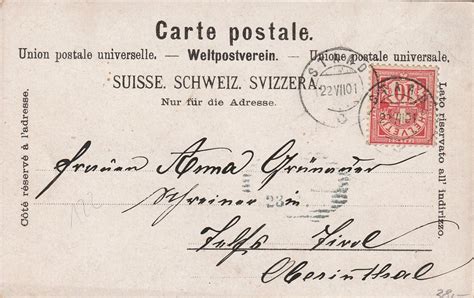 Carte postale.
Union postale universelle. — Weltpostverein. — Unione postale universale.
SUISSE. SCHWEIZ. SVIZZERA.
Nur für die Adresse.
Côté réservé à l'adresse.
Lato riservato all' indirizzo.
22 VII 01
10
HELVETIA
Frauen Anna Grünauer
Schreiner in
23
Telfs Tirol
Oberinnthal
28,-